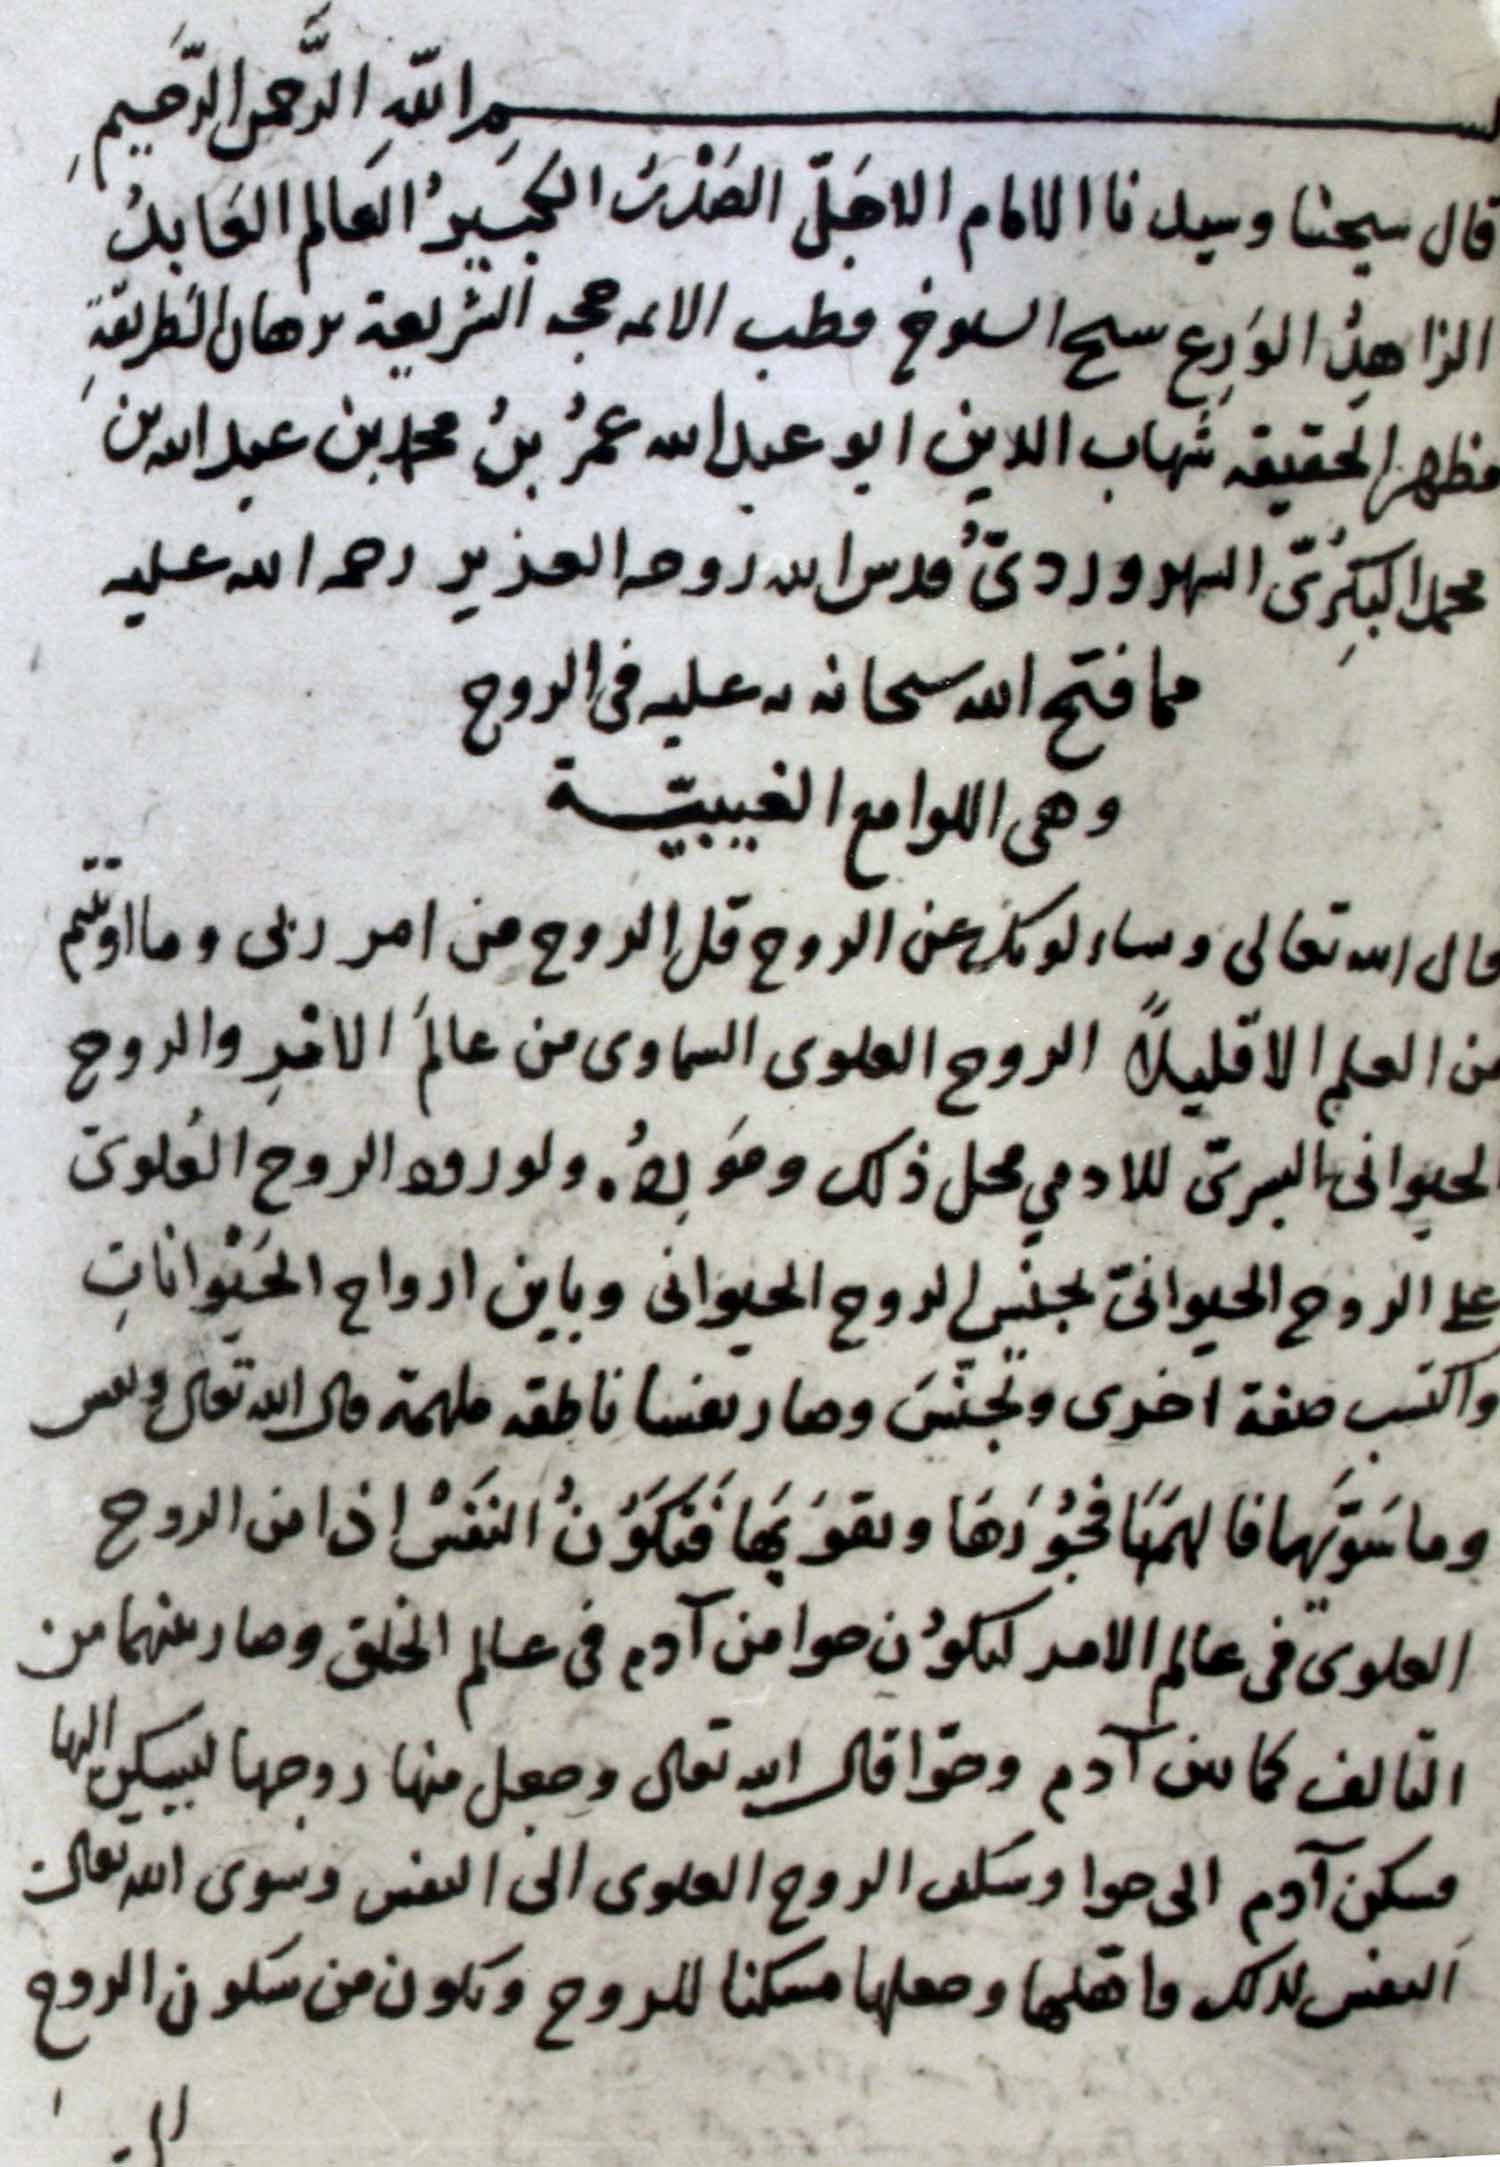 بسم الله الرَّحمن الرَّحيمِ
قال سيحنا وسيدنا الامام الاجلّ الصَدْرُ الكَبيرُ العَالم العَابدُ
الزاهدُ الوَرِع سح السلوخ قطب الائمه حجه الشريعة برهان الطريقةِ
مظهر الحقيقه شهاب الدين ابو عبد الله عمرُ بنُ محمد بن عبد الله بن
محمد البكرِىّ السهروردىّ قدس الله روحه العزيز رحمه الله عليه
مما فتح الله سبحانه به عليه فى الروح
وهى اللوامع الغيبيّة
قال الله تعالى وساءلونك عن الروح قل الروح من امر ربى وما اوتيتم
من العلم الا قليلاً الروح العلوى السماوى من عالمَ الامْرِ والروح
الحيوانى البشرىّ للادمي محل ذلك ومَورِدُه. ولورود الروح العُلوىّ
على الروح الحيوانىّ تجنّس الروح الحيوانى وباين ارواح الحَيْوانَاتِ
واكتسب صفة اخرى وتجنّسَ وصار نفسا ناطقه ملهمة قال الله تعالى ونفس
وما سَوَّيها فالهَمَهَا فجُوُرَهَا وتقوَيهَا فَتَكَوَّنُ النَفْسُ اذا من الروح
العلوى فى عالم الامر كتكوّن حوا من آدم فى عالم الخلق وصار بينهما من
التالف كما بين آدم وحوّا قال الله تعالى وجعل منها زوجها ليسكن اليها
فسكن آدم الى حوا وسكن الروح العلوى الى النفس وسوى الله تعالى
النفس لذلك واهلها وجعلها مسكنا للروح وتكون من سكون الروح